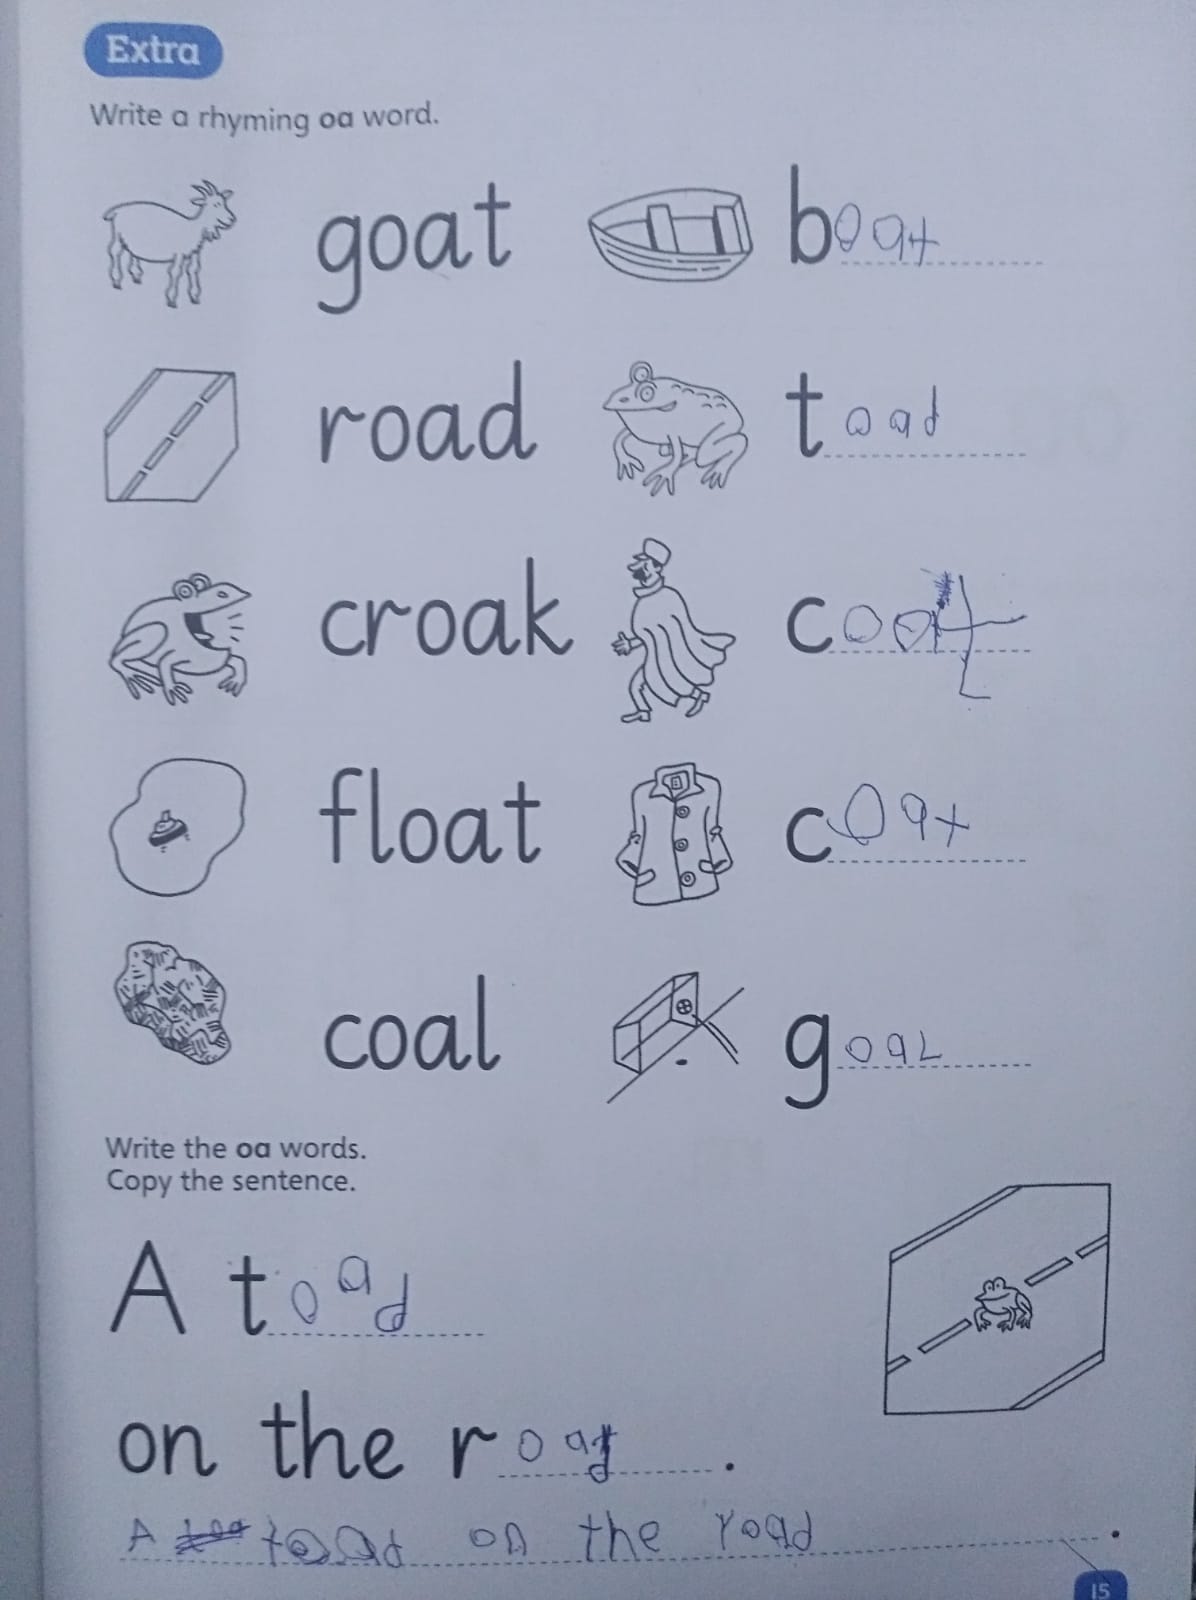 Extra
Write a rhyming oa word.
goat boat
road toad
croak coat
float coat
coal goal
Write the oa words.
Copy the sentence.
A toad
on the road.
A toad on the road.
15